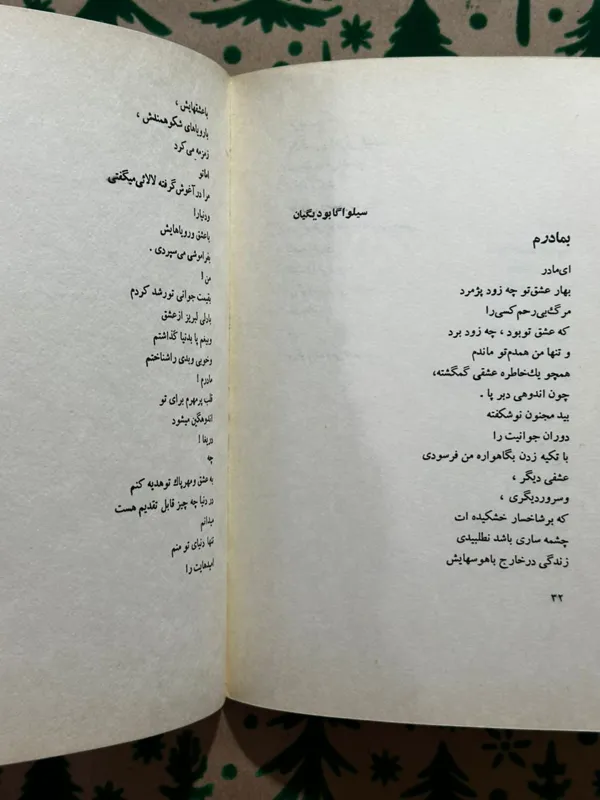 سیلوا گابودیگیان
بمادرم
ای مادر
بهار عشق تو چه زود پژمرد
مرگ بی رحم کسی را
که عشق تو بود ، چه زود برد
و تنها من همدم تو ماندم
همچو یك خاطره عشقی گمگشته،
چون اندوهی دیر پا .
بید مجنون نوشکفته
دوران جوانیت را
با تکیه زدن بگاهواره من فرسودی
عشقی دیگر ،
وسروردیگری ،
که برشاخسار خشکیده ات
چشمه ساری باشد نطلبیدی
زندگی درخارج باهوسهایش
۳۲
باعشقهایش ،
بارویاهای شکوهمندش ،
زمزمه می کرد
اماتو
مرا در آغوش گرفته لالائی میگفتی
ودنیارا
باعشق ورویاهایش
بفراموشی می سپردی .
من !
بقیمت جوانی تورشد کردم
بادلی لبریز ازعشق
وبیغم پا بدنیا گذاشتم
وخوبی وبدی راشناختم
مادرم !
قلب پرمهرم برای تو
اندوهگین میشود
دریغا !
چه
به عشق ومهرپاك توهدیه کنم
در دنیا چه چیز قابل تقدیم هست
میدانم
تنها دنیای تو منم
امیدهایت را